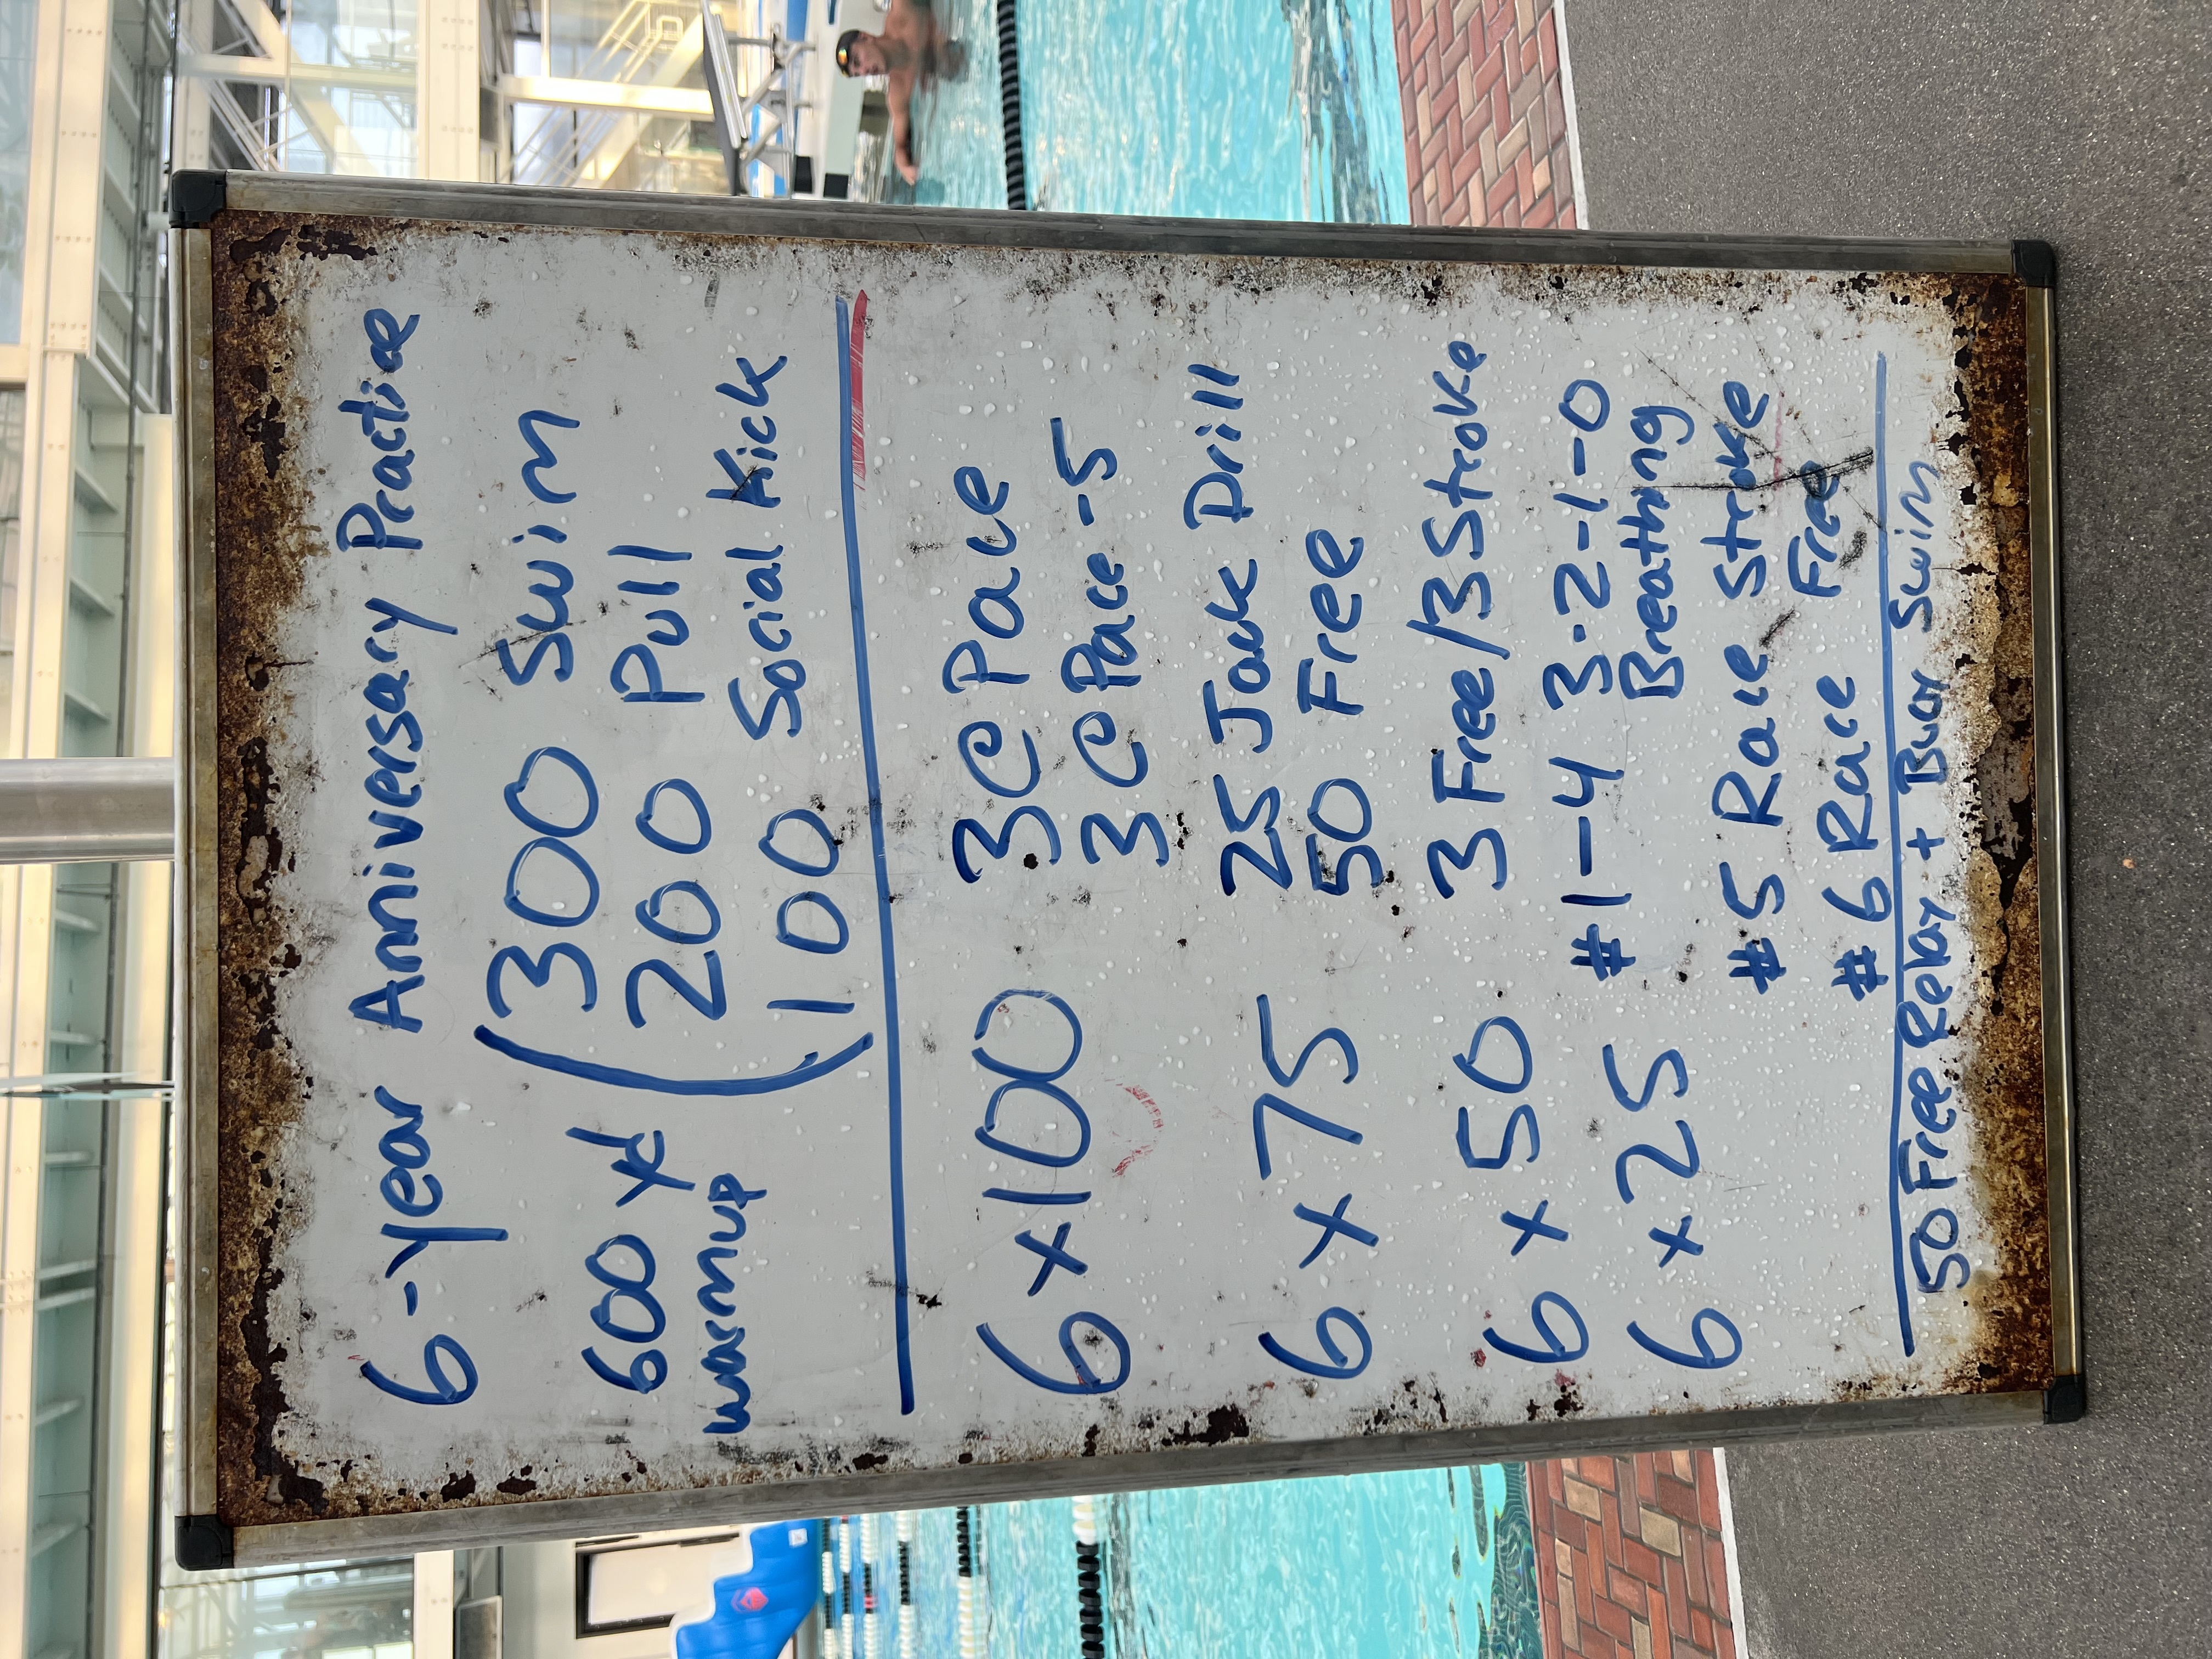 6-year Anniversary Practice
600 yd warmup
(300 Swim
200 Pull
100 Social Kick
6x100 3@Pace
3@Pace-5
6x75 25 Jack Drill
50 Free
6x50 3 Free/3 Stroke
6x25 #1-4 3-2-1-0
Breathing
#5 Race Stroke
#6 Race Free
50 Free Relay + Buoy Swim